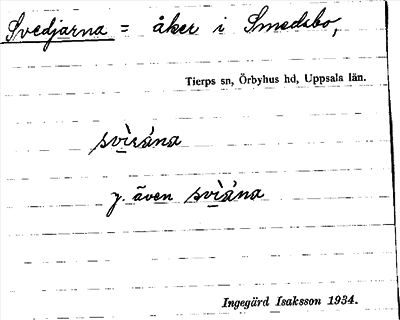 Svedjarna = åker i Smedsbo,
Tierps sn, Örbyhus hd, Uppsala län.
svìrána
y. även svìána
Ingegärd Isaksson 1934.